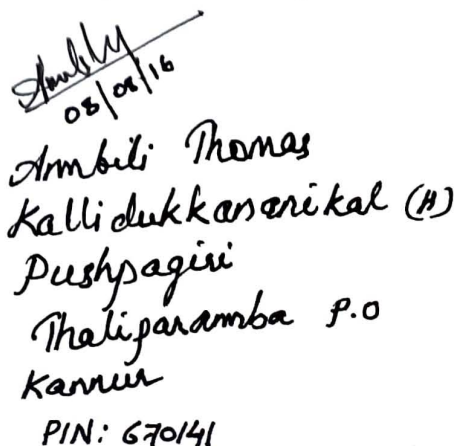 08/08/16
Ambili Thomas
Kallidukkananikal (H)
Pushpagiri
Thaliparamba P.O
Kannur
PIN: 670141